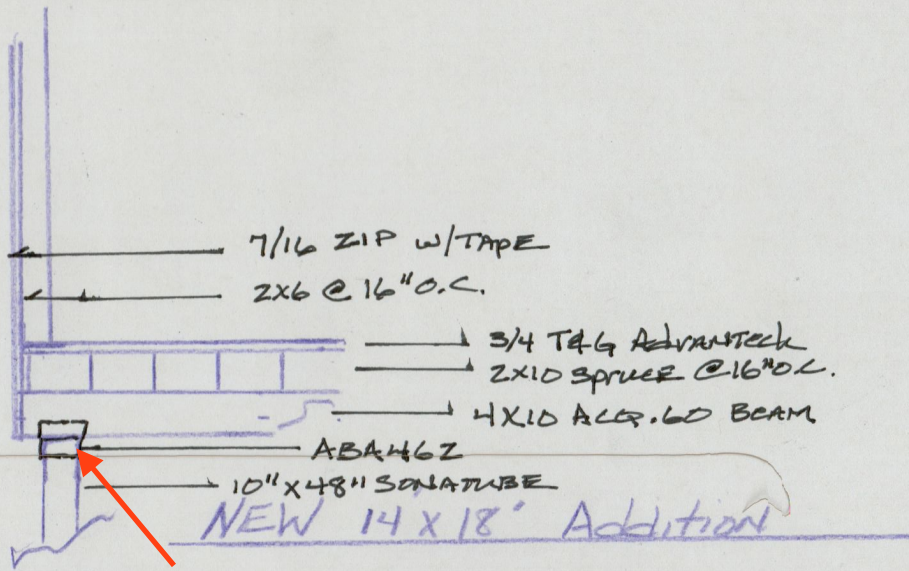 7/16 ZIP W/TAPE
2X6 @ 16" O.C.
3/4 T&G ADVANTECK
2X10 SPRUCE @ 16" O.C.
4X10 ACQ .60 BEAM
ABA46Z
10" X 48" SONATUBE
NEW 14 X 18' Addition